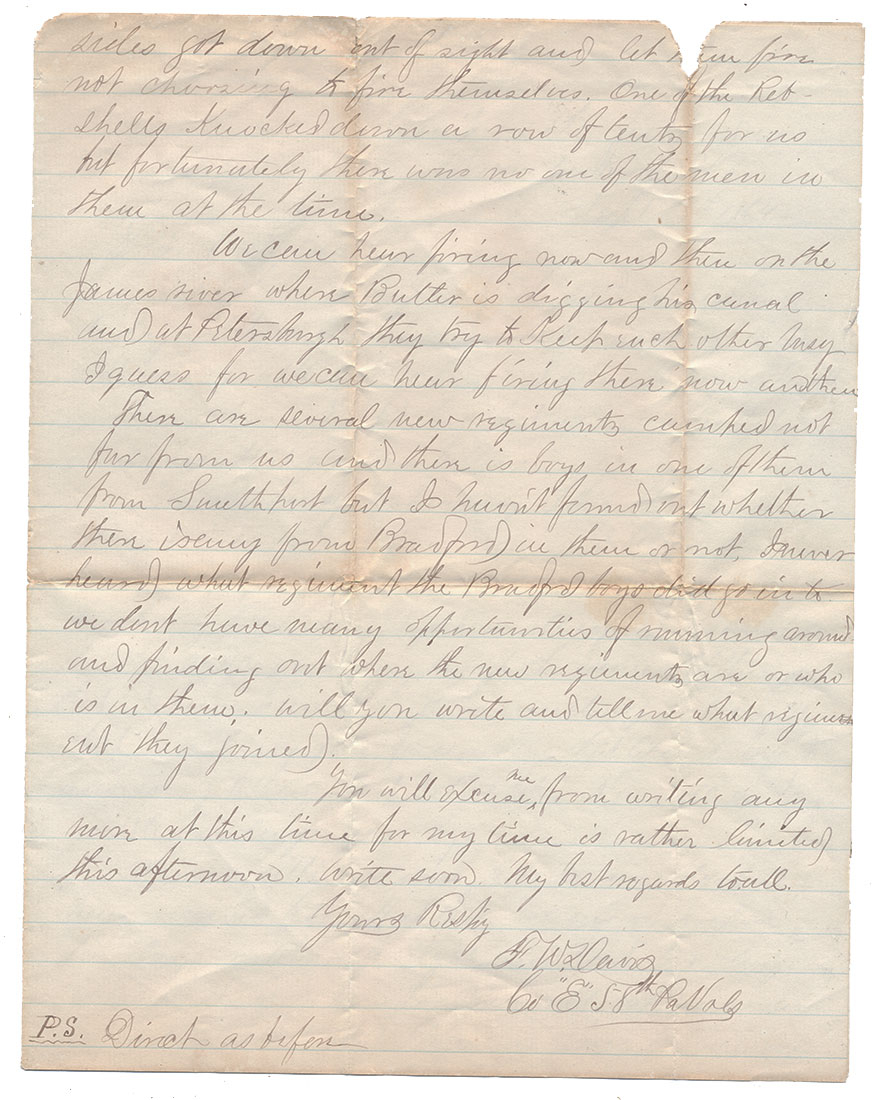 sides got down out of sight and let them fire
not choosing to fire themselves. One of the Reb-
shells Knocked down a row of tents for us
but fortunately there was no one of the men in
them at the time.
We can hear firing now and then on the
James river where Butler is digging his canal
and at Petersburgh they try to Keep each other busy
I guess for we can hear firing there now and then
There are several new regiments camped not
far from us and there is boys in one of them
from Smethport but I havn't found out whether
there is any from Bradford in them or not, I never
heard what regiment the Bradford boys did go in to
we dont have many opportunities of running around
and finding out where the new regiments are or who
is in them. will you write and tell me what regim
ent they joined.
You will excuse me from writing any
more at this time for my time is rather limited
this afternoon. write soon. My best regards to all.
Yours Respy
F. W. Davis
Co "E" 58th Pa Vols
P.S. Direct as before